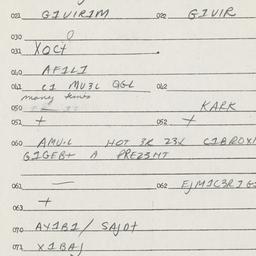 021 GIVIRIM 022 GIVIR
030 0
031 XOCT
040 AFILI
041 CI MU3L QGL 042
many kinds
050 KARK
051 + 052 +
060 AMU.L HOT 3K 23L CIBROX
GIGEBT A PREZ3NT
061 — 062 EJMIC3RIG
063 +
070 AYIBI / SAJOT
071 XIBAJ